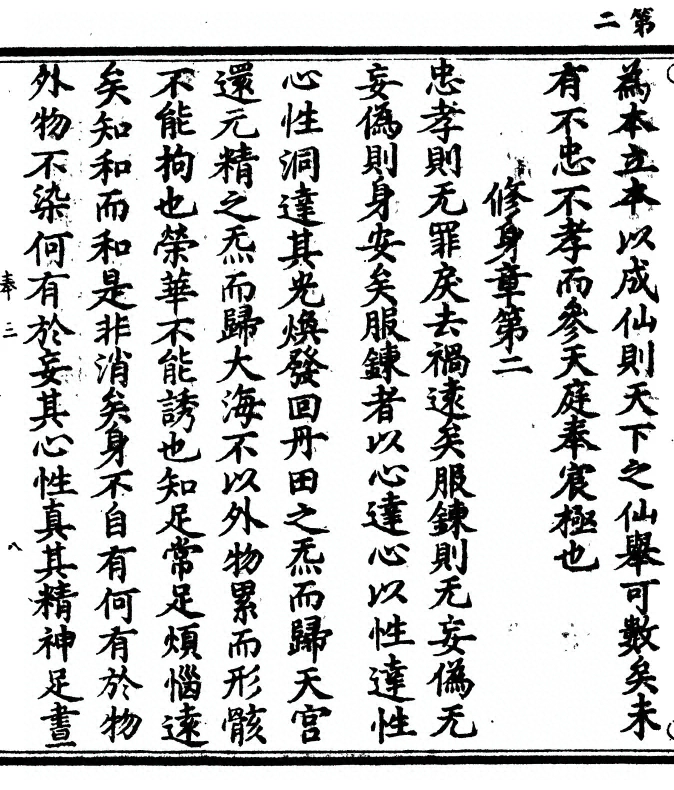 第二
為本立本以成仙則天下之仙舉可數矣未
有不忠不孝而參天庭奉宸極也
修身章第二
忠孝則无罪戾去禍遠矣服鍊則无妄偽无
妄偽則身安矣服鍊者以心達心以性達性
心性洞達其光煥發回丹田之炁而歸天宫
還元精之炁而歸大海不以外物累而形骸
不能拘也榮華不能誘也知足常足煩惱遠
矣知和而和是非消矣身不自有何有於物
外物不染何有於妄其心性真其精神足晝
奉三